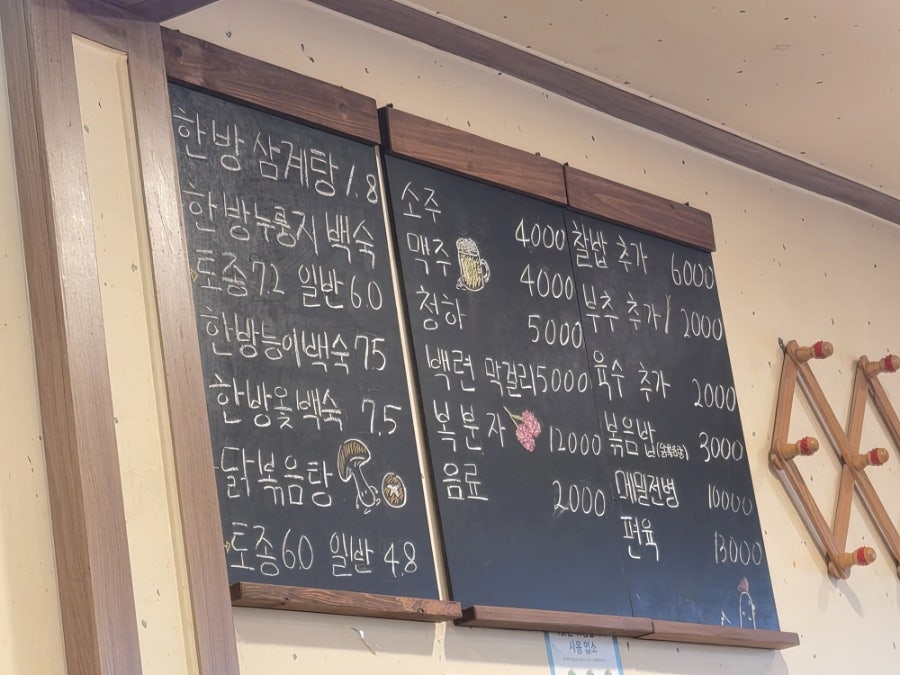 한방 삼계탕 1.8
한방누룽지 백숙
토종 7.2 일반 6.0
한방능이백숙 7.5
한방옻백숙 7.5
닭볶음탕
토종 6.0 일반 4.8
소주 4000
맥주 4000
청하 5000
백련 막걸리 5000
복분자 12000
음료 2000
찰밥 추가 6000
부추 추가 2000
육수 추가 2000
볶음밥 3000
메밀전병 10000
편육 13000
사용업소